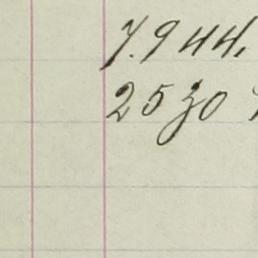 7.944.
2530